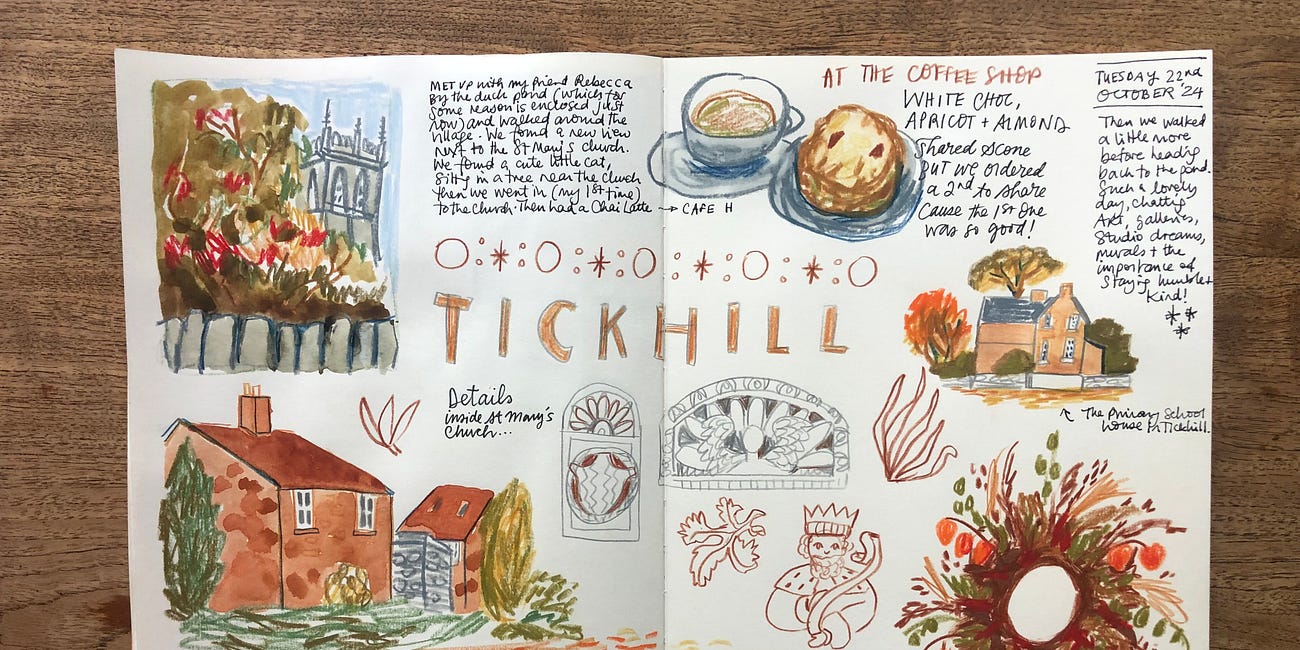 MET UP with my friend Rebecca
By the duck pond (which for
some reason is enclosed just
now) and walked around the
village. We found a new view
next to the St Mary's church.
We found a cute little cat,
sitting in a tree near the church
then we went in (my 1st time)
to the church. Then had a Chai Latte → CAFE H
AT THE COFFEE SHOP
WHITE CHOC,
APRICOT + ALMOND
Shared scone
BUT we ordered
a 2nd to share
Cause the 1st one
was so good!
TUESDAY 22nd
OCTOBER '24
Then we walked
a little more
before heading
back to the pond.
Such a lovely
day, chatting
Art, galleries,
Studio dreams,
murals + the
importance of
Staying humble +
Kind!
TICKHILL
Details
inside St Mary's
Church...
The Primary School
House in Tickhill.